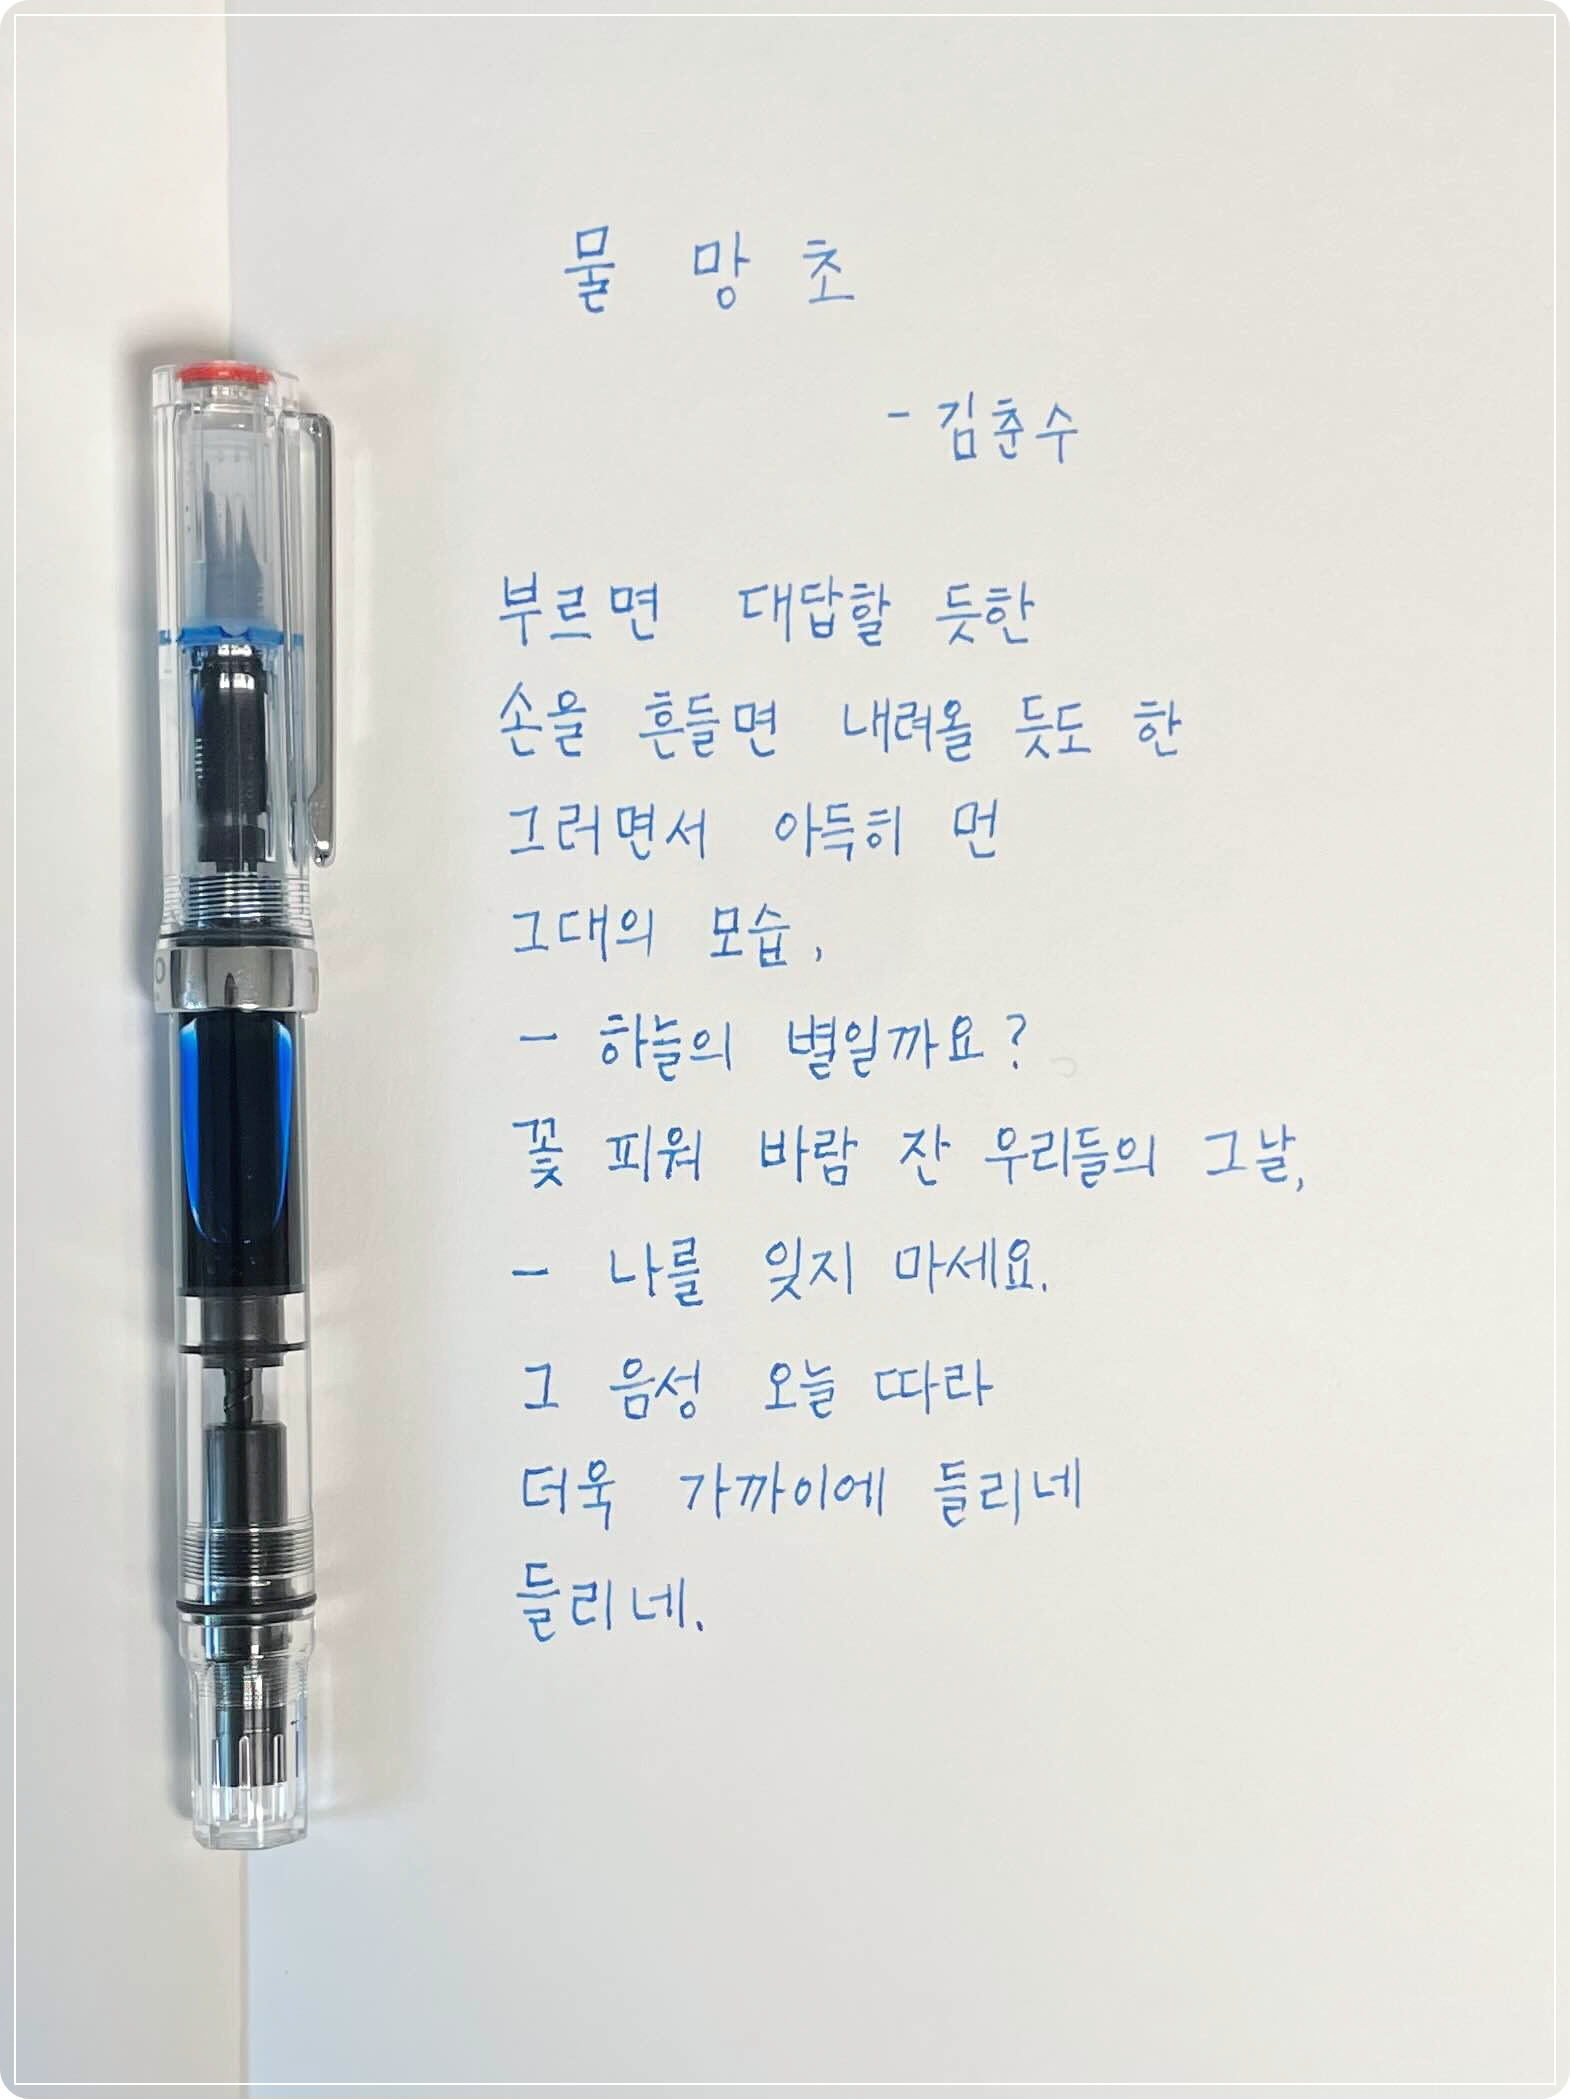 물망초
- 김춘수
부르면 대답할 듯한
손을 흔들면 내려올 듯도 한
그러면서 아득히 먼
그대의 모습,
- 하늘의 별일까요?
꽃 피워 바람 잔 우리들의 그날,
- 나를 잊지 마세요.
그 음성 오늘 따라
더욱 가까이에 들리네
들리네.